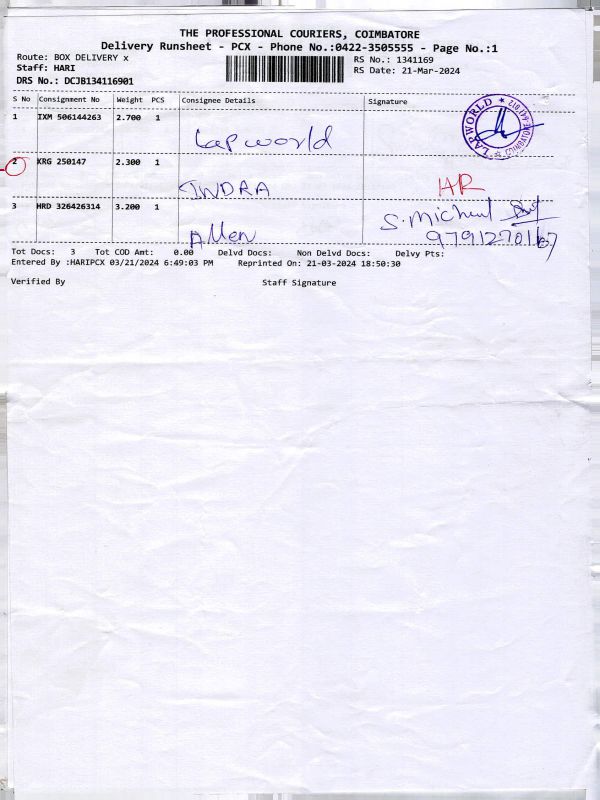 THE PROFESSIONAL COURIERS, COIMBATORE
Delivery Runsheet - PCX - Phone No.:0422-3505555 - Page No.:1
Route: BOX DELIVERY x
Staff: HARI
DRS No.: DCJB134116901
RS No.: 1341169
RS Date: 21-Mar-2024
S No Consignment No Weight PCS Consignee Details Signature
1 IXM 506144263 2.700 1
Lap world
LAP WORLD
2 KRG 250147 2.300 1
INDRA
3 HRD 326426314 3.200 1
Allen
S. Micheal
Tot Docs: 3 Tot COD Amt: 0.00 Delvd Docs: Non Delvd Docs: Delvy Pts:
Entered By :HARIPCX 03/21/2024 6:49:03 PM Reprinted On: 21-03-2024 18:50:30
Verified By Staff Signature